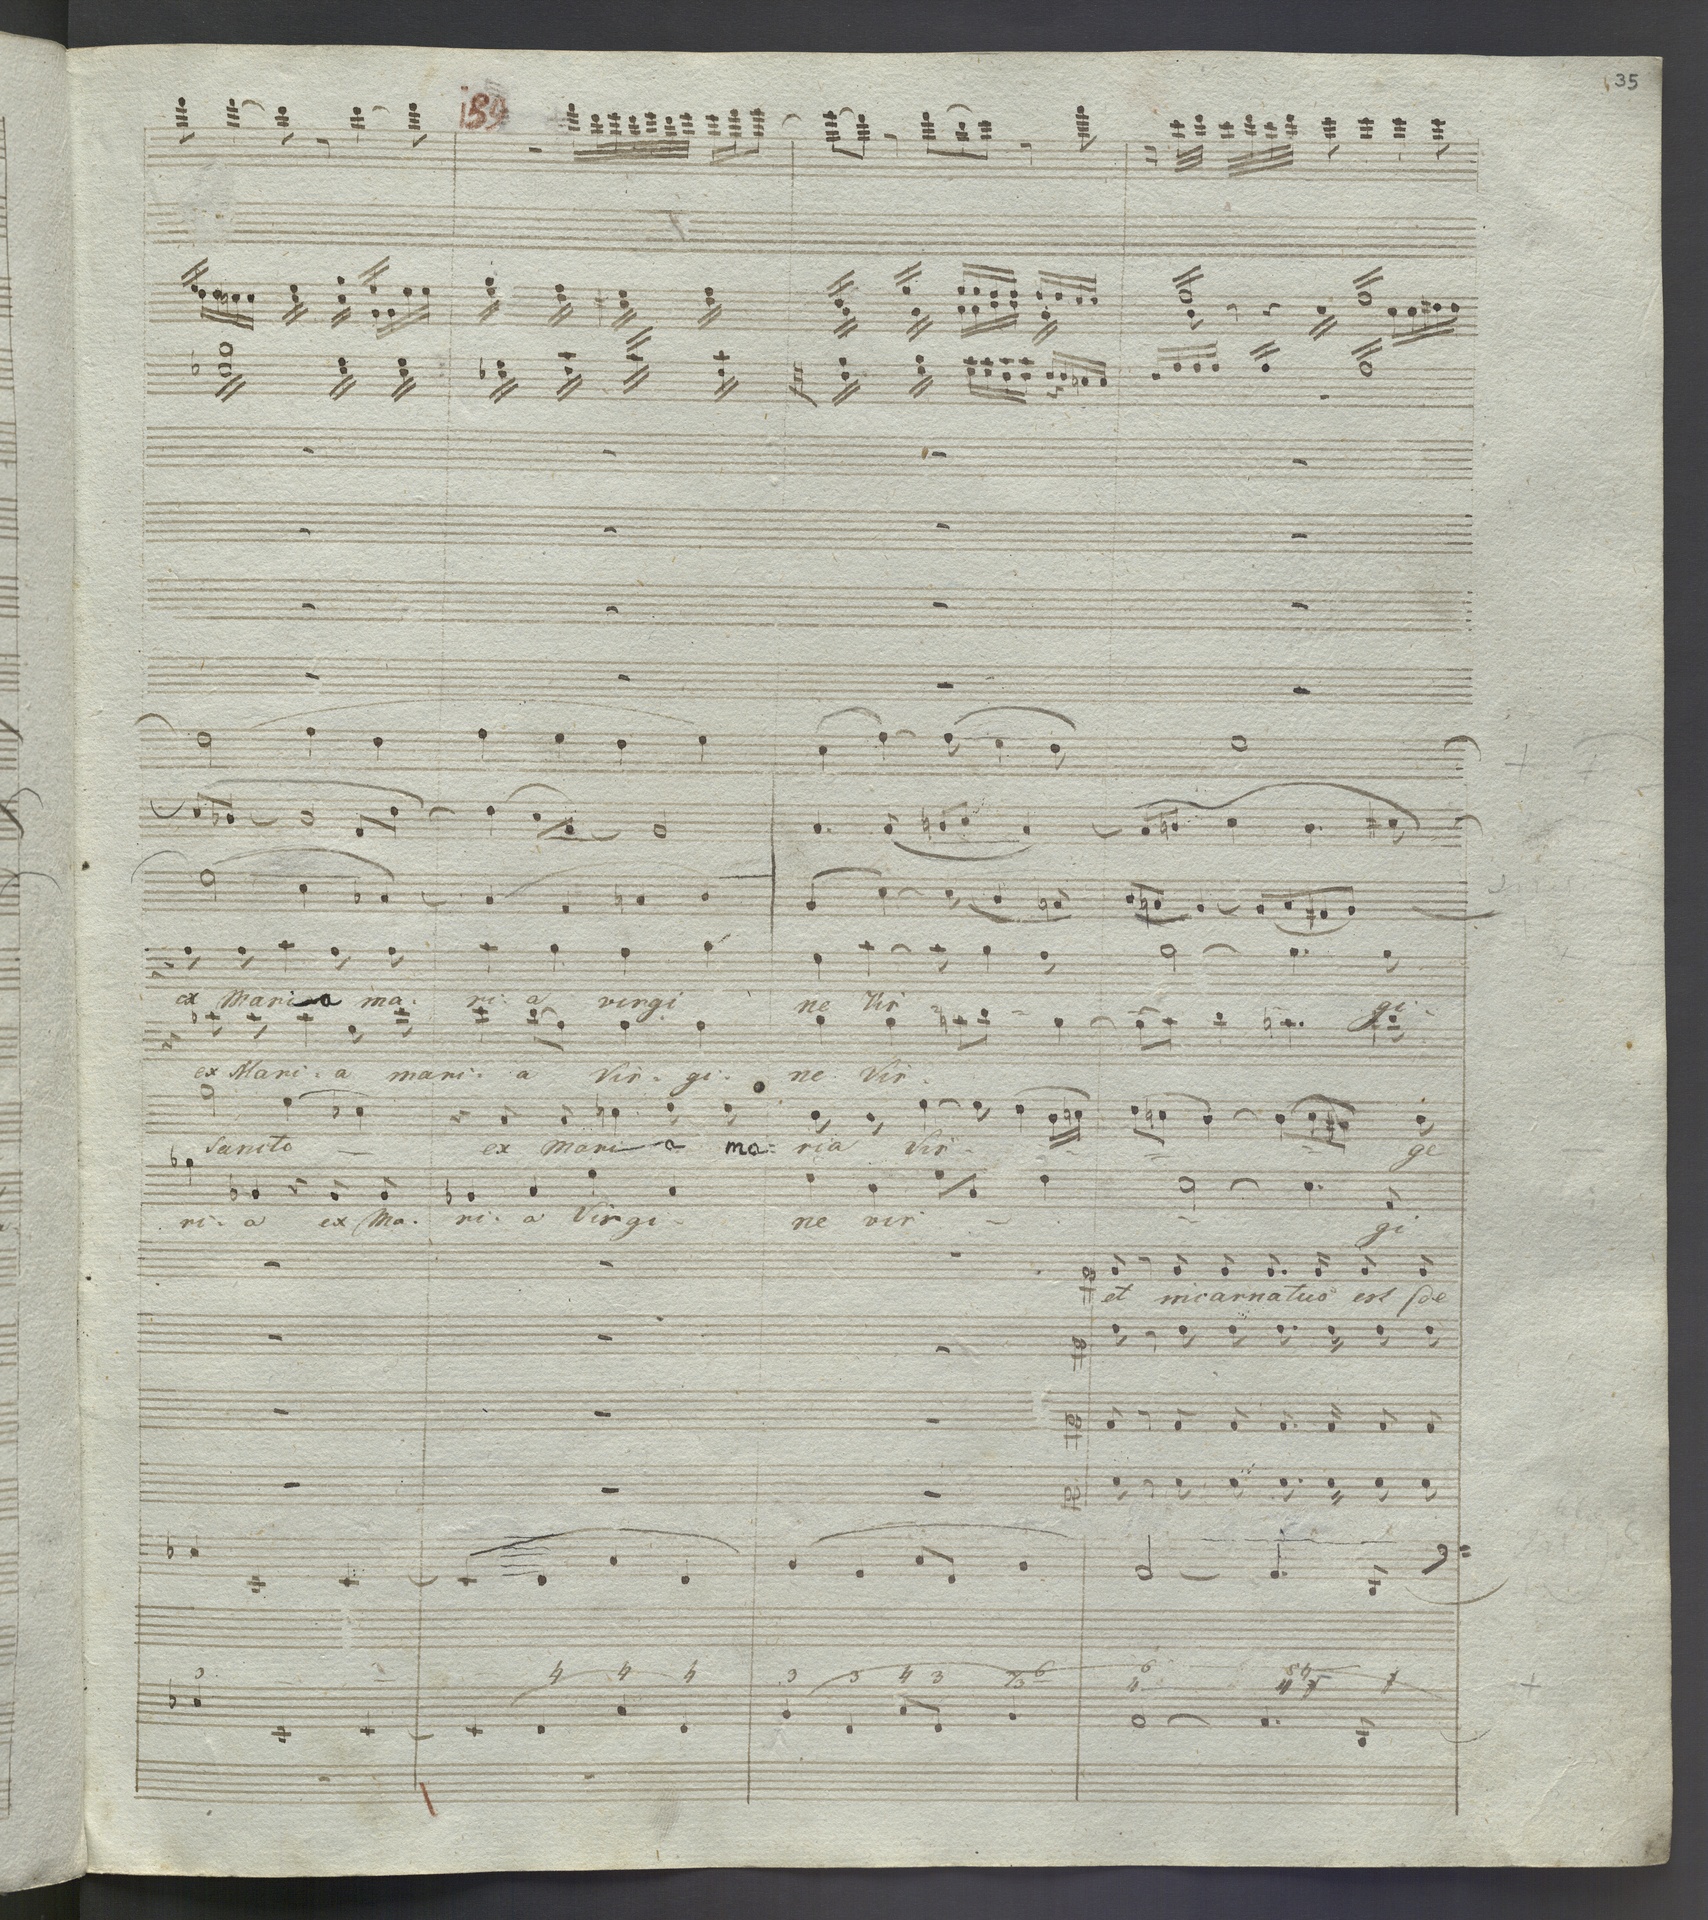 35
134
ex Maria ma. ri. a virgi ne Vir - - gi -
ex Mari. a mari. a Vir. gi. ne Vir.
Sancto - ex Mari a ma. ria Vir - - - ge
ri. a ex Ma. ri. a Virgi - ne vir - - gi
et incarnatus est de
3 4 4 4 3 3 4 3 6 6